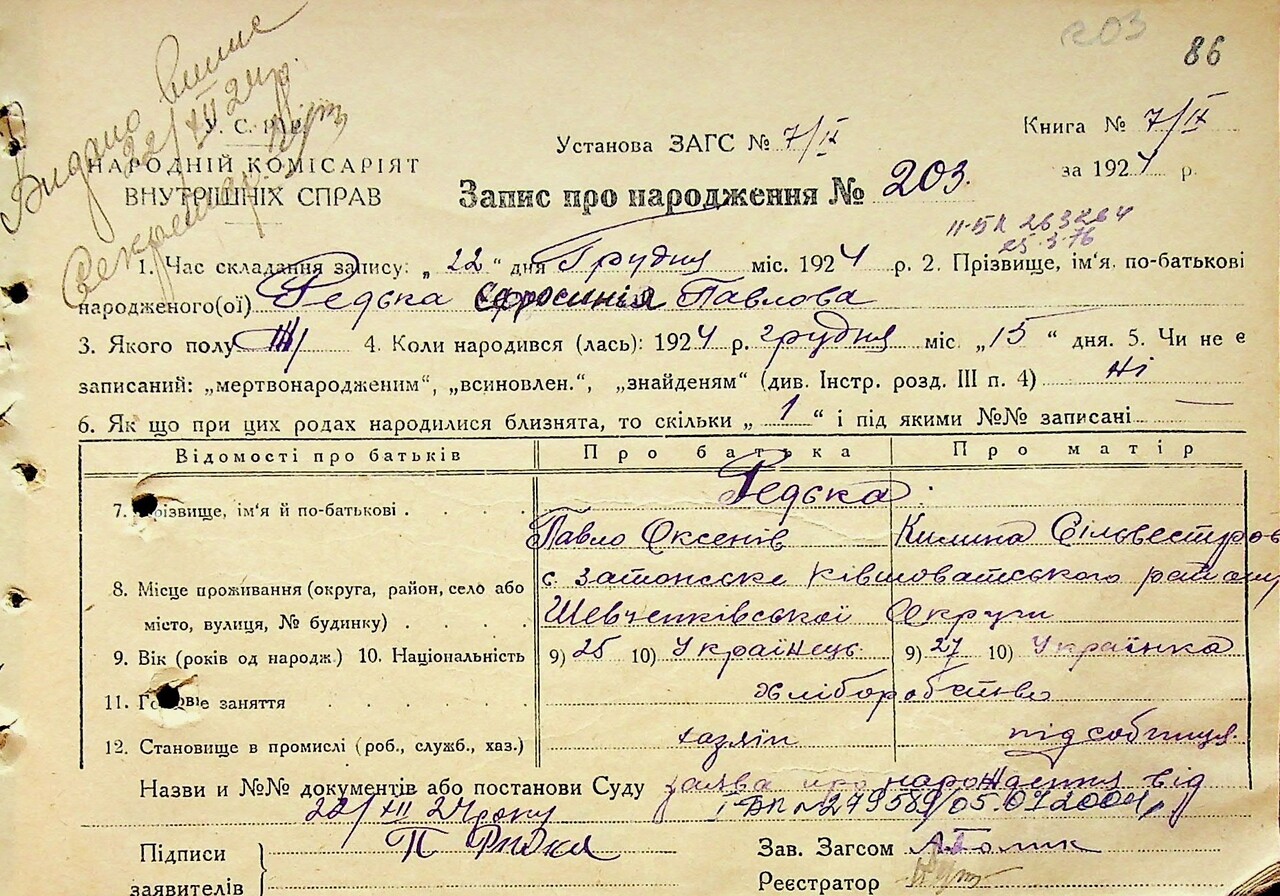 203
86
Видано
22/XII 24 р.
Секретар
У. С. Р Р.
НАРОДНІЙ КОМІСАРІЯТ
ВНУТРІШНІХ СПРАВ
Установа ЗАГС № 7/IX
Книга № 7/IX
за 1924 р.
Запис про народження № 203.
II-БК 263264
25.3.76
1. Час складання запису: „ 22 “ дня Грудня міс. 1924 р. 2. Прізвище, ім'я, по-батькові
народженого(ої) Редька Єфросинія Павлова
3. Якого полу Ж 4. Коли народився (лась): 1924 р. грудня міс. „15 “ дня. 5. Чи не є
записаний: „мертвонародженим“, „всиновлен.“, „знайденям“ (див. Інстр. розд. III п. 4) Ні
6. Як що при цих родах народилися близнята, то скільки „ 1 “ і під якими №№ записані —
Відомості про батьків Про батька Про матір
Редька
7. Прізвище, ім'я й по-батькові
Павло Оксенів Килина Сільвестров
8. Місце проживання (округа, район, село або с. Затонське Ківшоватського району
місто, вулиця, № будинку) Шевченківської Округи
9. Вік (років од народж.) 10. Національність 9) 25 10) Українець 9) 27 10) Українка
11. Головне заняття хліборобство
12. Становище в промислі (роб., служб., хаз.) хазяїн підсобниця
Назви и №№ документів або постанови Суду заява про народження від
22/XII 24 року I-БК №279589/05.01.2004
Підписи
заявителів
П Редька
Зав. Загсом
Реєстратор